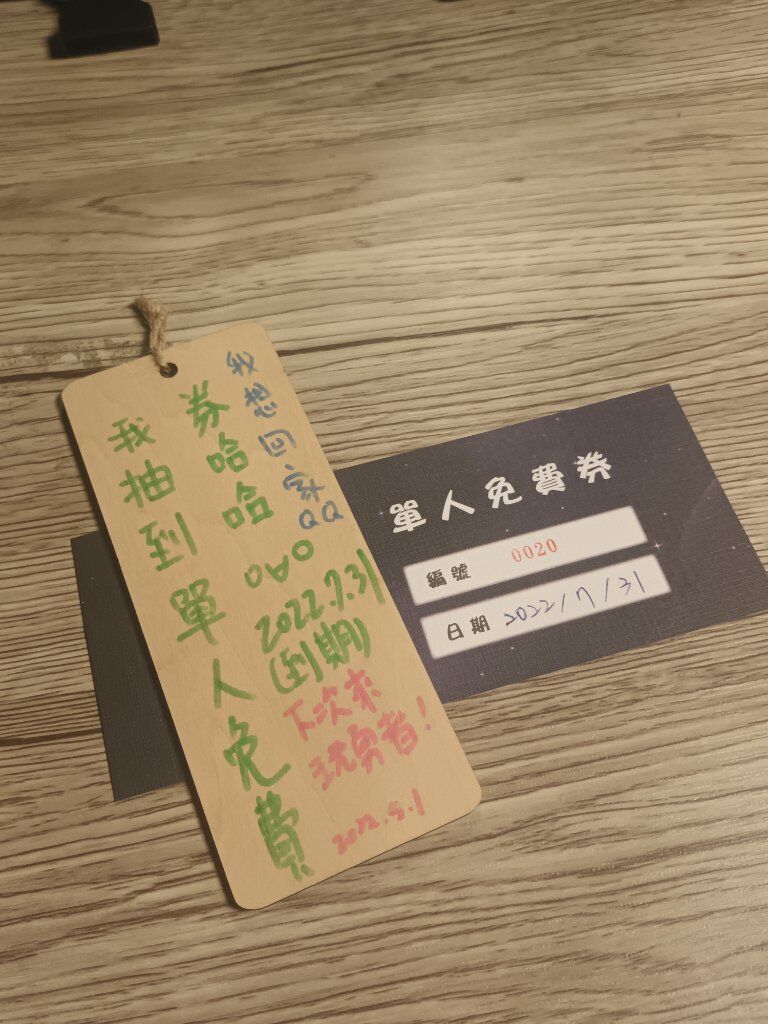 我抽到單人免費
券哈哈 OVO
2022.7.31
(到期)
我想回家QQ
下次來
玩勇者!
2022.5.1
單人免費券
編號 0020
日期 2022/7/31